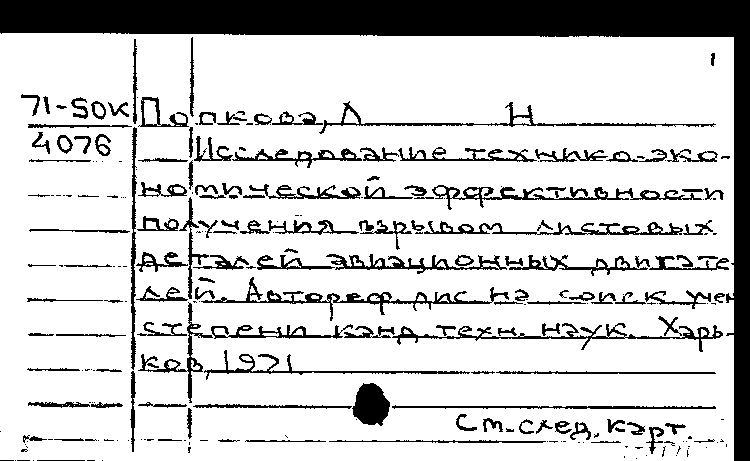 1
71-50К Попкова, Л Н
4076 Исследование технико-эко-
номической эффективности
получения взрывом листовых
деталей авиационных двигате-
лей. Автореф. дис на соиск учен
степени канд. техн. наук. Харь-
ков, 1971.
См. след. карт.